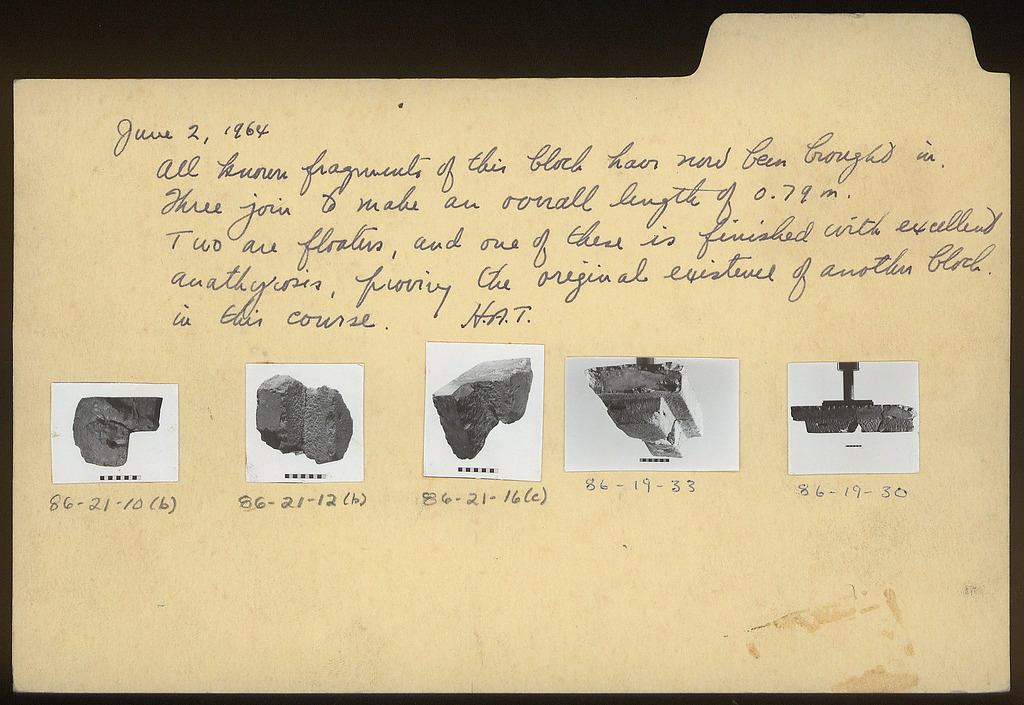 June 2, 1964
All known fragments of this block have now been brought in.
Three join to make an overall length of 0.79 m.
Two are floaters, and one of these is finished with excellent
anathyrosis, proving the original existence of another block.
in this course. H.A.T.
86-21-10(b) 86-21-12(b) 86-21-16(c) 86-19-33 86-19-30